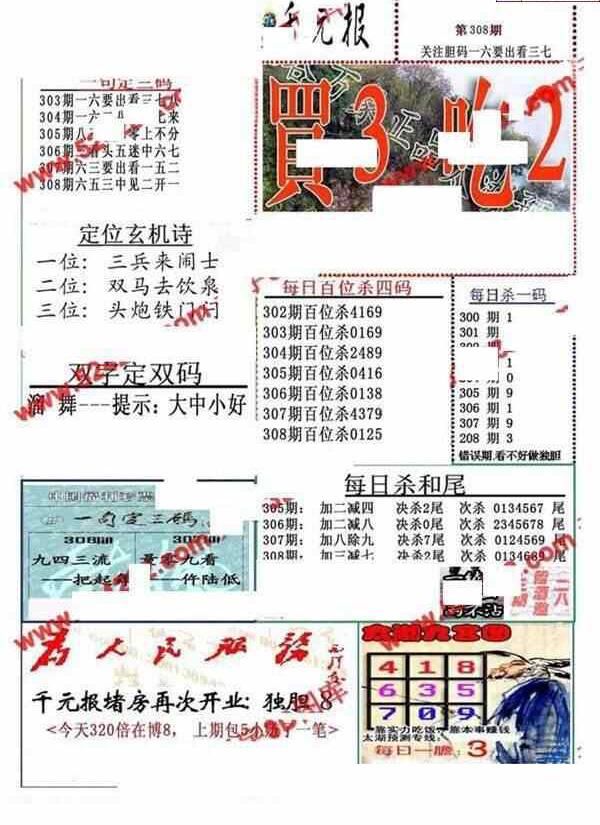 千元报
第308期
关注胆码一六要出看三七
一句定三码
303期一六要出看三七八
304期一六 七来
305期八 零上不分
306期 头五迷中六七
307期六三要出看一五二
308期六五三中见二开一
買3吃2
定位玄机诗
一位: 三兵来闹士
二位: 双马去饮泉
三位: 头炮铁门闩
每日百位杀四码
302期百位杀4169
303期百位杀0169
304期百位杀2489
305期百位杀0416
306期百位杀0138
307期百位杀4379
308期百位杀0125
每日杀一码
300 期 1
301 期
1
304 0
305 期 9
306 期 1
307 期 9
208 期 3
错误期,看不好做独胆
双字定双码
溜 舞---提示: 大中小好
每日杀和尾
305期: 加二减四 决杀2尾 次杀 0134567 尾
306期: 加二减八 决杀0尾 次杀 2345678 尾
307期: 加八除九 决杀7尾 次杀 0124569 尾
308期: 加三减七 决杀2尾 次杀 0134689 尾
一句定三碼
308期
九四三流
——把起
零九看
——仵陆低
为人民服務
千元报堵房再次开业: 独胆 8
<今天320倍在博8, 上期包5小 了一笔>
太湖九宫图
4 1 8
6 3 5
7 0 9
靠实力吃饭 靠本事赚钱
太湖预测专线:
每日一胆: 3